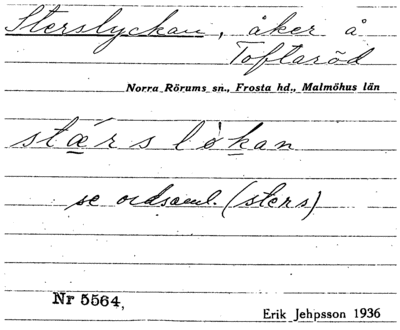 Sterslyckan, åker å
Toftaröd
Norra Rörums sn., Frosta hd., Malmöhus län
stærsløkan
se ordsaml. (sters)
Nr 5564,
Erik Jehpsson 1936